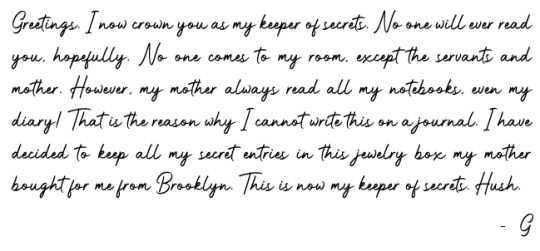 Greetings. I now crown you as my keeper of secrets. No one will ever read
you, hopefully. No one comes to my room, except the servants and
mother. However, my mother always read all my notebooks, even my
diary! That is the reason why I cannot write this on a journal. I have
decided to keep all my secret entries in this jewelry box my mother
bought for me from Brooklyn. This is now my keeper of secrets. Hush.
- G